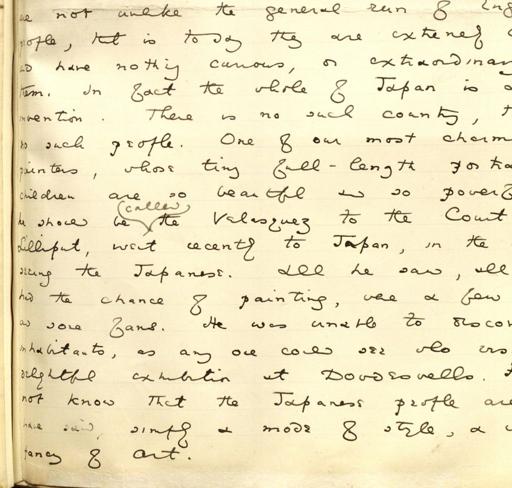 are not unlike the general run of Eng
people, that is to say they are extremely
and have nothing curious, or extraordinary
them. In fact the whole of Japan is a
invention. There is no such country, t
no such people. One of our most charm
painters, whose tiny full-length portra
children are so beautiful and so powerf
he should be called the Velasquez to the Court
Lilliput, went recently to Japan, in the
seeing the Japanese. All he saw, all
had the chance of painting, were a few
and some fans. He was unable to discov
inhabitants, as any one could see who
delightful exhibition at Dowdeswells.
not know that the Japanese people are
have said, simply a mode of style, a
fancy of art.